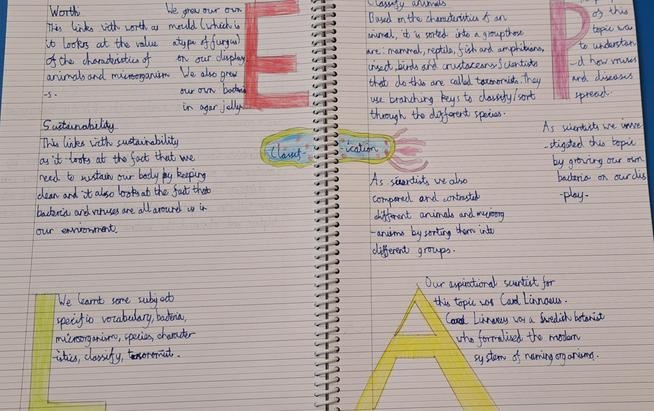 Worth
This links with worth as
it looks at the value
of the characteristics of
animals and microorganism
-s.
We grew our own
mould (which is
a type of fungus)
on our display
We also grew
our own bacteria
in agar jelly.
E
Sustainability
This links with sustainability
as it looks at the fact that we
need to sustain our body by keeping
clean and it also looks at the fact that
bacteria and viruses are all around us in
our environment.
L
We learnt some subject
specific vocabulary, bacteria,
microorganism, species, character
-istics, classify, taxonomist.
Classif
ication
Classify animals
Based on the characteristics of an
animal, it is sorted into a group those
are: mammal, reptile, fish and amphibians,
insect, birds and crustaceans. Scientists
that do this are called taxonomists. They
use branching keys to classify/sort
through the different species.
P
of this
topic was
to understan
-d how viruses
and diseases
spread.
As scientists we inve
-stigated this topic
by growing our own
bacteria on our dis
-play.
As scientists we also
compared and contrasted
different animals and microorg
-anisms by sorting them into
different groups.
A
Our aspirational scientist for
this topic was Carl Linnaeus.
Carl Linnaeus was a Swedish botanist
who formalised the modern
system of naming organisms.